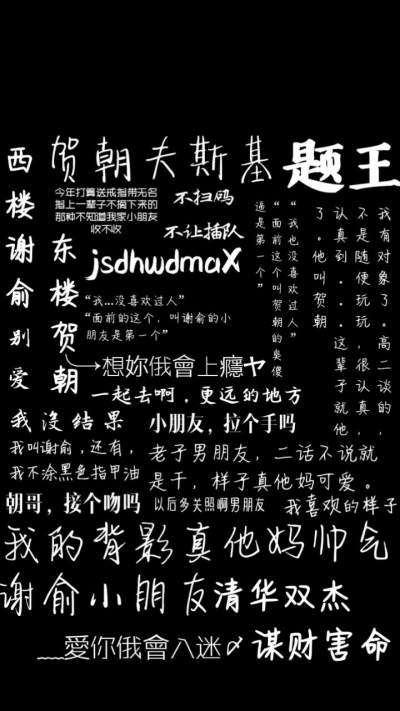 西楼谢俞
别爱
贺朝夫斯基
题王
今年打算送戒指带无名
指上一辈子不摘下来的
那种不知道我家小朋友
收不收
不扫码
不让插队
东楼贺朝
jsdhwdmaX
“我...没喜欢过人”
“面前的这个，叫谢俞的小
朋友是第一个”
“我也没喜欢过人”
“面前这个叫贺朝的傻
逼是第一个”
我有对象了。高二谈的，
不是随便玩玩，很认真，
认真到。这辈子就他
了。他叫贺朝。
想妳俄會上癮ヤ
一起去啊，更远的地方
我没结果
小朋友，拉个手吗
我叫谢俞，还有，
我不涂黑色指甲油
老子男朋友，二话不说就
是干，样子真他妈可爱。
朝哥，接个吻吗
以后多关照啊男朋友
我喜欢的样子
我的背影真他妈帅气
谢俞小朋友
清华双杰
﹏愛你俄會入迷〆
谋财害命